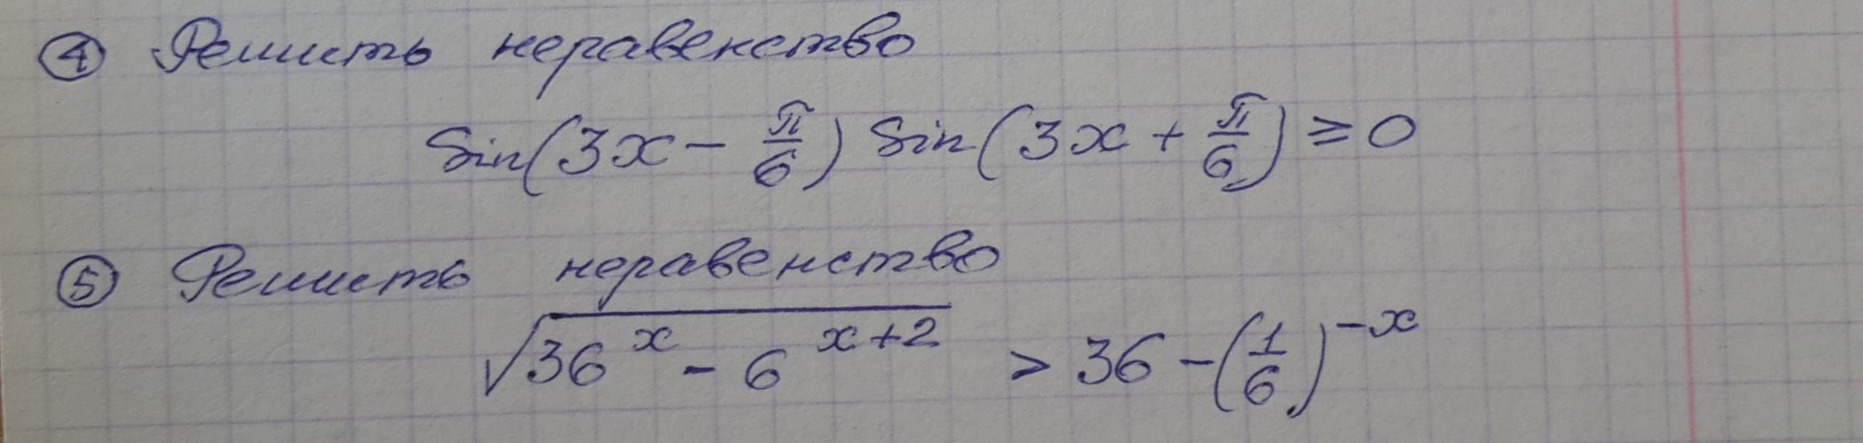 ④ Решить неравенство
Sin(3x - π/6) Sin(3x + π/6) ≥ 0
⑤ Решить неравенство
√(36^x - 6^(x+2)) > 36 - (1/6)^(-x)